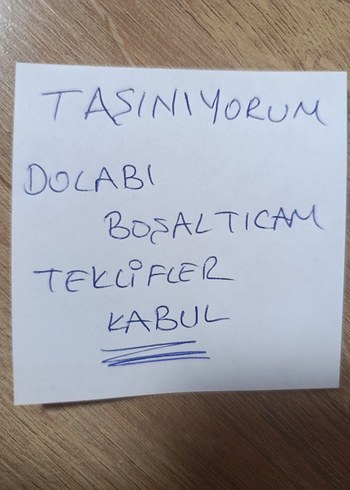 TAŞINIYORUM
DOLABI
BOŞALTICAM
TEKLİFLER
KABUL